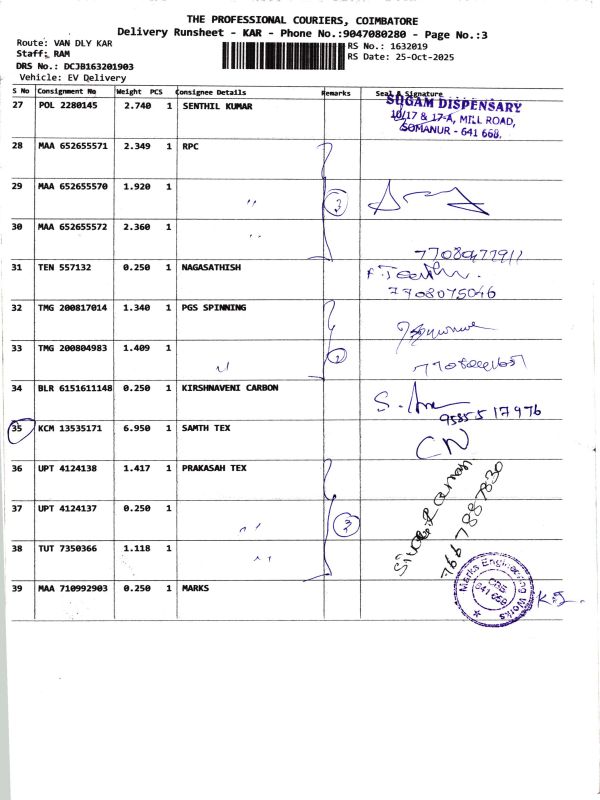 THE PROFESSIONAL COURIERS, COIMBATORE
Delivery Runsheet - KAR - Phone No.:9047080280 - Page No.:3
Route: VAN DLY KAR
RS No.: 1632019
Staff: RAM
RS Date: 25-Oct-2025
DRS No.: DCJB163201903
Vehicle: EV Delivery
S No Consignment No Weight PCS Consignee Details Remarks Seal & Signature
27 POL 2280145 2.740 1 SENTHIL KUMAR
SUGAM DISPENSARY
10/17 & 17-A, MILL ROAD,
SOMANUR - 641 668.
28 MAA 652655571 2.349 1 RPC
29 MAA 652655570 1.920 1 〃 3
30 MAA 652655572 2.360 1 〃
7708477911
31 TEN 557132 0.250 1 NAGASATHISH
7708075046
32 TMG 200817014 1.340 1 PGS SPINNING
33 TMG 200804983 1.409 1 〃 2
34 BLR 6151611148 0.250 1 KIRSHNAVENI CARBON
95855 17976
35 KCM 13535171 6.950 1 SAMTH TEX CN
36 UPT 4124138 1.417 1 PRAKASAH TEX
37 UPT 4124137 0.250 1 〃 3
38 TUT 7350366 1.118 1 〃
7667887830
39 MAA 710992903 0.250 1 MARKS
Marks Engineering Works
CBE
641 658
K.S.